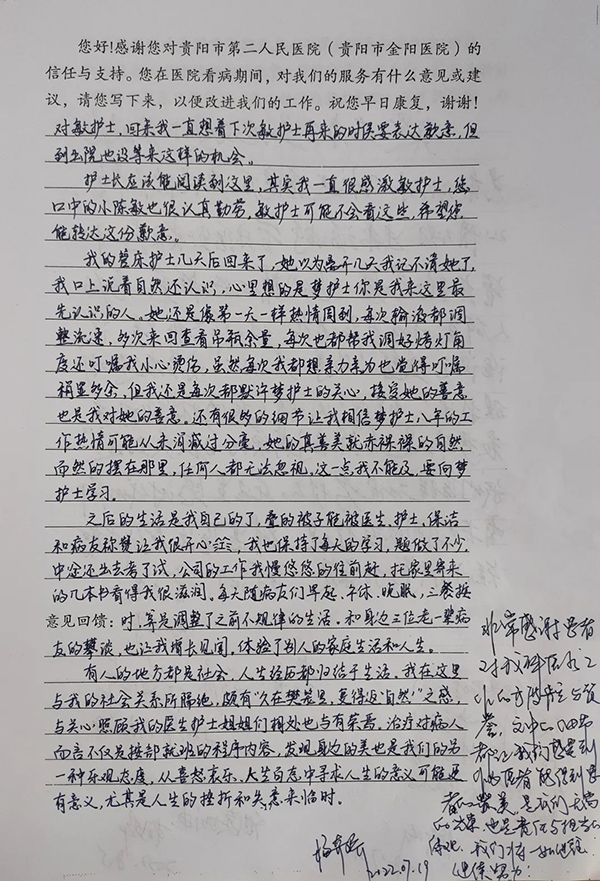 您好!感谢您对贵阳市第二人民医院（贵阳市金阳医院）的
信任与支持。您在医院看病期间，对我们的服务有什么意见或建
议，请您写下来，以便改进我们的工作。祝您早日康复，谢谢!
对敏护士，回来我一直想着下次敏护士再来的时侯要表达歉意，但
到出院也没等来这样的机会。
护士长应该能阅读到这里，其实我一直很感激敏护士，您
口中的小陈敏也很认真勤劳，敏护士可能不会看这些，希望您
能转达这份歉意。
我的管床护士几天后回来了，她以为离开几天我记不清她了，
我口上说着自然还认识，心里想的是梦护士你是我来这里最
先认识的人，她还是像第一天一样热情周到，每次输液都调
整流速，多次来回查看吊瓶余量，每次也都帮我调好烤灯角
度还叮嘱我小心烫伤，虽然每次我都想亲力亲为也觉得叮嘱
稍显多余，但我还是每次都默许梦护士的关心，接受她的善意
也是我对她的善意。还有很多的细节让我相信梦护士八年的工
作热情可能从未消减过分毫，她的真善美就赤裸裸的自然
而然的摆在那里，任何人都无法忽视，这一点我不能及，要向梦
护士学习。
之后的生活是我自己的了，叠的被子能被医生、护士、保洁
和病友称赞让我很开心，我也保持了每天的学习，题做了不少，
中途还出去考了试，公司的工作我慢悠悠的往前赶，托家里寄来
的几本书看得我很滋润。每天随病友们早起、午休、晚眠，三餐按
意见回馈：时，算是调整了之前不规律的生活。和身边三位老一辈病
友的攀谈，也让我增长见闻，体验了别人的家庭生活和人生。
有人的地方都是社会，人生经历都归结于生活，我在这里
与我的社会关系所隔绝，颇有“久在樊笼里，复得返自然”之感，
与关心照顾我的医生护士姐姐们相处也与有荣焉。治疗对病人
而言不仅是按部就班的程序内容，发现身边的美也是我们的另
一种乐观态度，从喜怒哀乐、人生百态中寻求人生的意义可能更
有意义，尤其是人生的挫折和失意来临时。
2022.07.19
非常感谢患者
对我科医护工